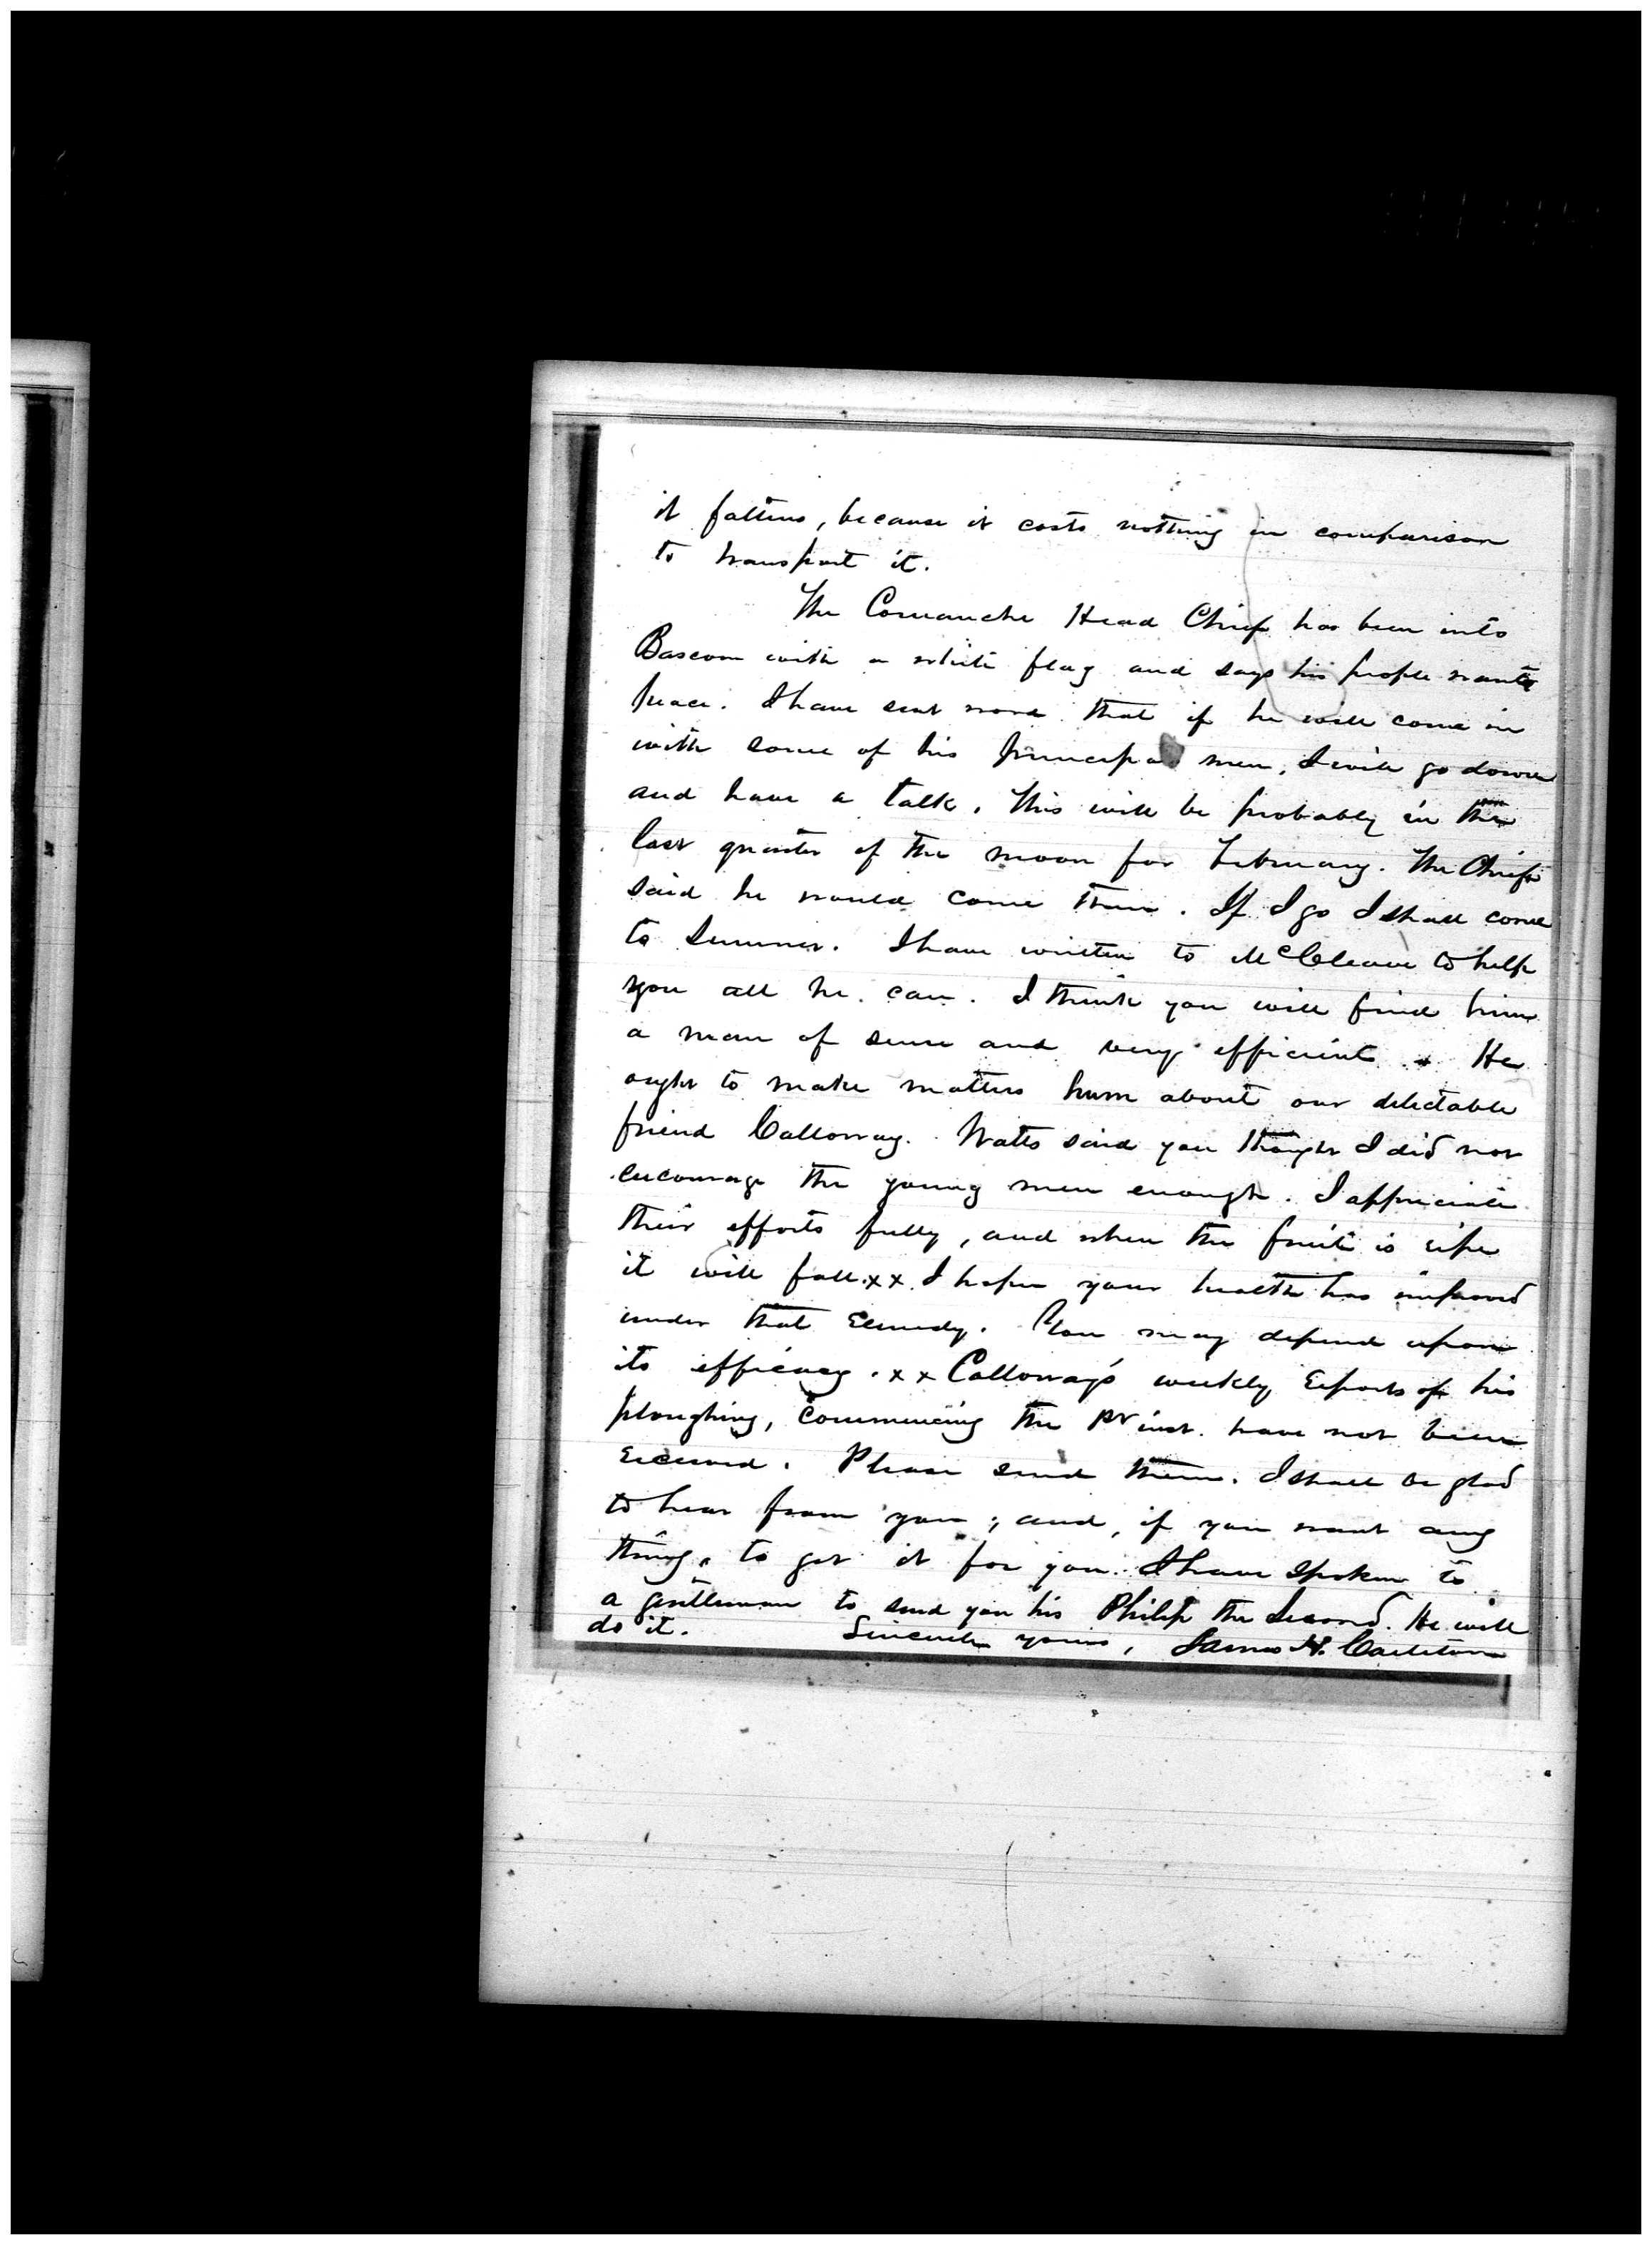 it fattens, because it costs nothing in comparison
to transport it.
The Comanche Head Chief has been into
Bascom with a white flag and says his people wants
peace. I have sent word that if he will come in
with some of his principal men, I will go down
and have a talk. This will be probably in the
last quarter of the moon for February. The Chief
said he would come then. If I go I shall come
to Sumner. I have written to McCleave to help
you all he can. I think you will find him
a man of sense and very efficient. He
ought to make matters hum about our delectable
friend Calloway. Watts said you thought I did not
encourage the young men enough. I appreciate
their efforts fully, and when the fruit is ripe
it will fall. x x I hope your health has improved
under that remedy. You may depend upon
its efficacy. x x Calloway's weekly reports of his
ploughing, commencing the 1st inst. have not been
received. Please send them. I shall be glad
to hear from you; and, if you want any
thing, to get it for you. I have spoken to
a gentleman to send you his Philip the Second. He will
do it. Sincerely yours, James H. Carleton